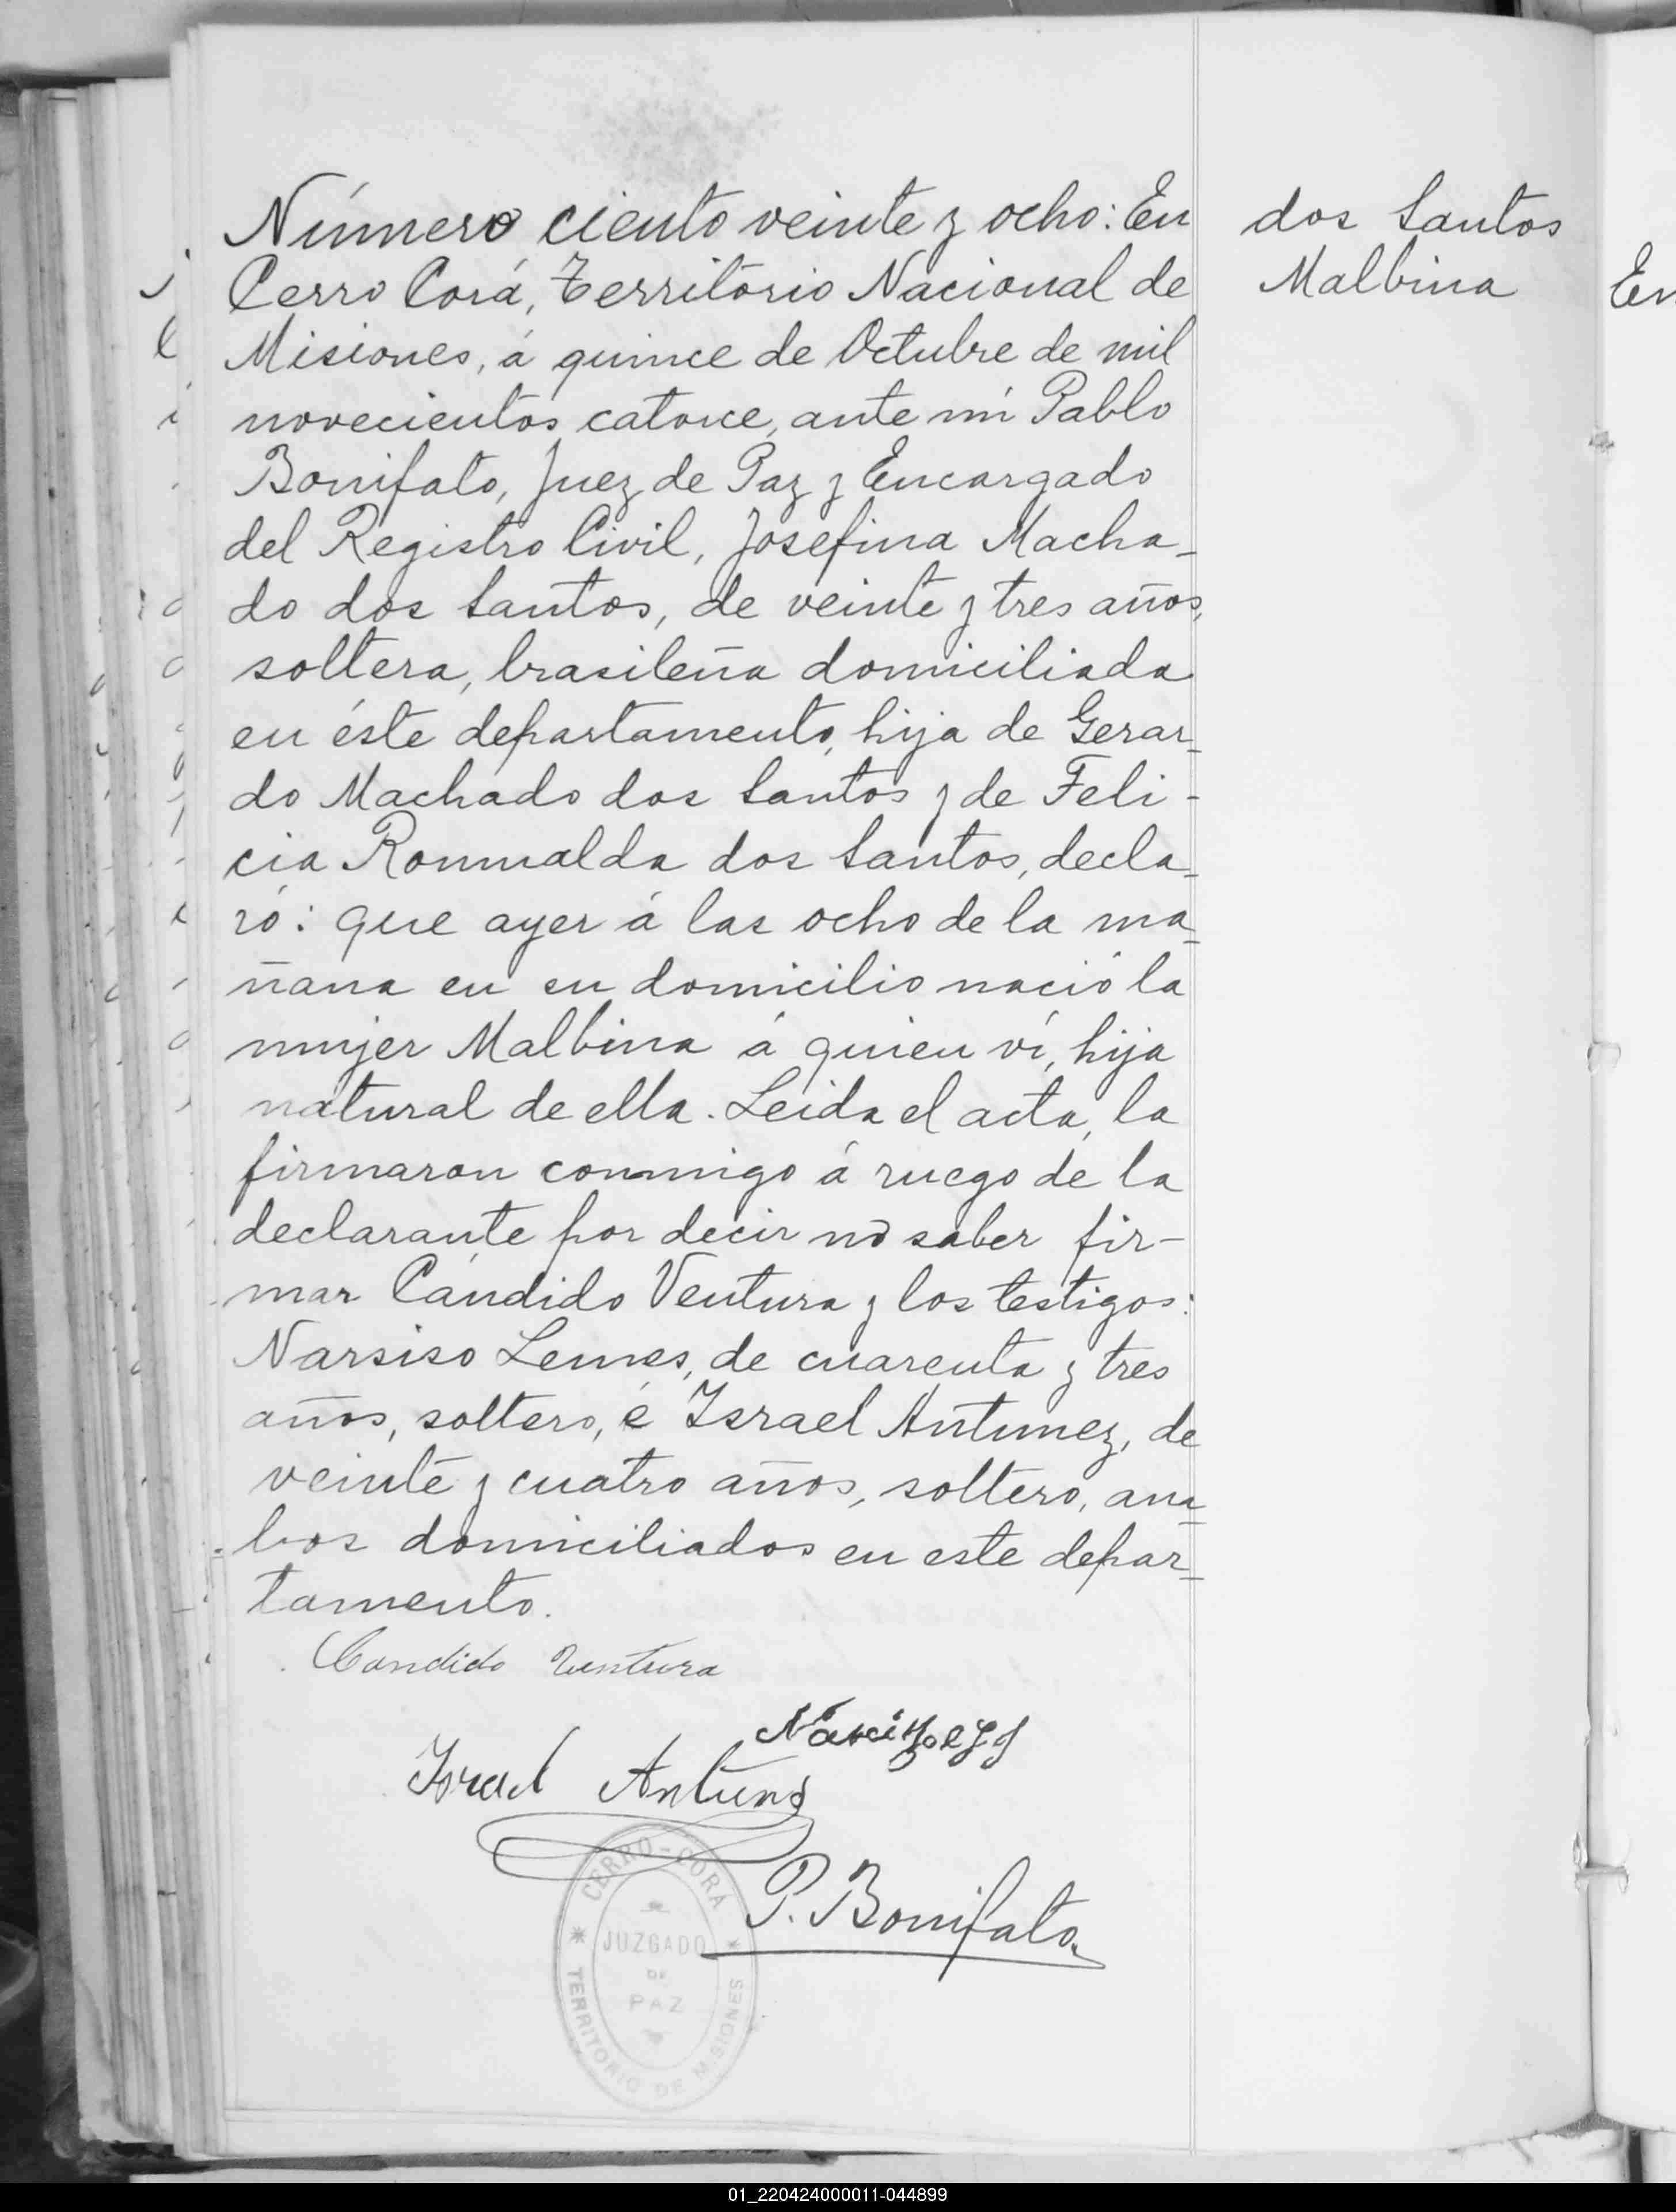 Número ciento veinte y ocho: En
Cerro Corá, Territorio Nacional de
Misiones, á quince de Octubre de mil
novecientos catorce, ante mi Pablo
Bonifato, Juez de Paz y Encargado
del Registro Civil, Josefina Macha-
do dos Santos, de veinte y tres años,
soltera, brasileña domiciliada
en éste departamento, hija de Gerar-
do Machado dos Santos y de Feli-
cia Romualda dos Santos, decla-
ró: que ayer á las ocho de la ma-
ñana en su domicilio nació la
mujer Malbina á quien ví, hija
natural de ella. Leida el acta, la
firmaron conmigo á ruego de la
declarante por decir no saber fir-
mar Cándido Ventura y los testigos:
Narsiso Lemes, de cuarenta y tres
años, soltero, é Israel Antunez, de
veinte y cuatro años, soltero, am-
bos domiciliados en este depar-
tamento.
dos Santos
Malbina
En
Candido Ventura
Israel Antunes
P. Bonifato
CERRO-CORÁ
JUZGADO
DE
PAZ
TERRITORIO DE MISIONES
01_220424000011-044899